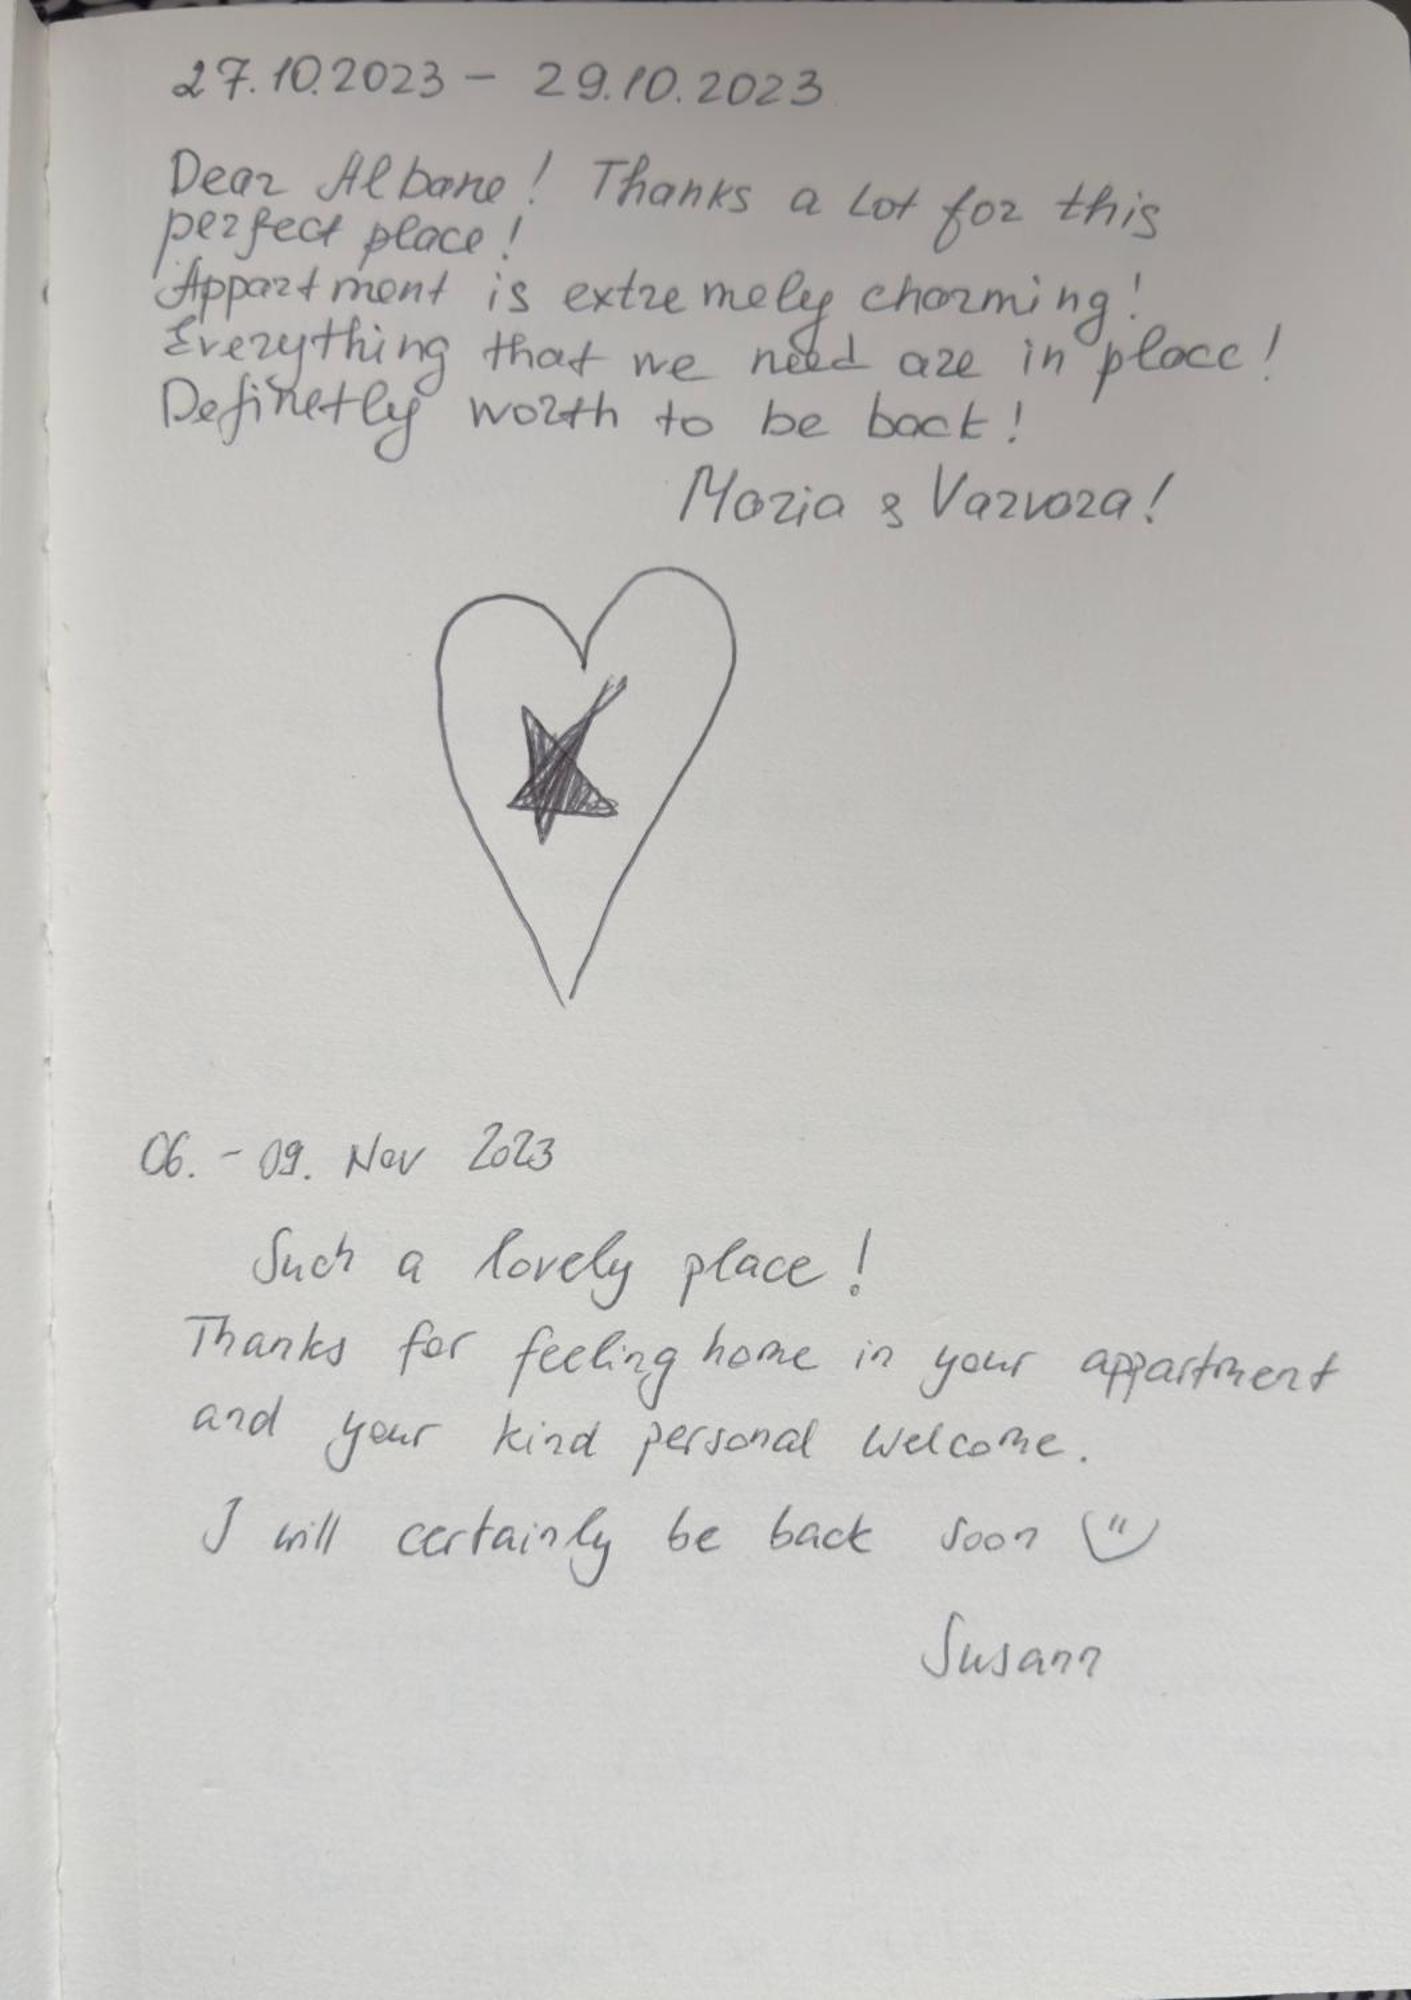 27.10.2023 – 29.10.2023
Dear Albane! Thanks a Lot for this
perfect place!
Appartment is extremely charming!
Everything that we need are in place!
Definetly worth to be back!
Maria & Varvara!
06. - 09. Nov 2023
Such a lovely place!
Thanks for feeling home in your appartment
and your kind personal welcome.
I will certainly be back soon
Susann